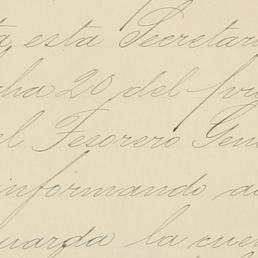 ta esta Secretar
cha 20 del pr
el Tesorero Gen
informando a
uarda la cuen